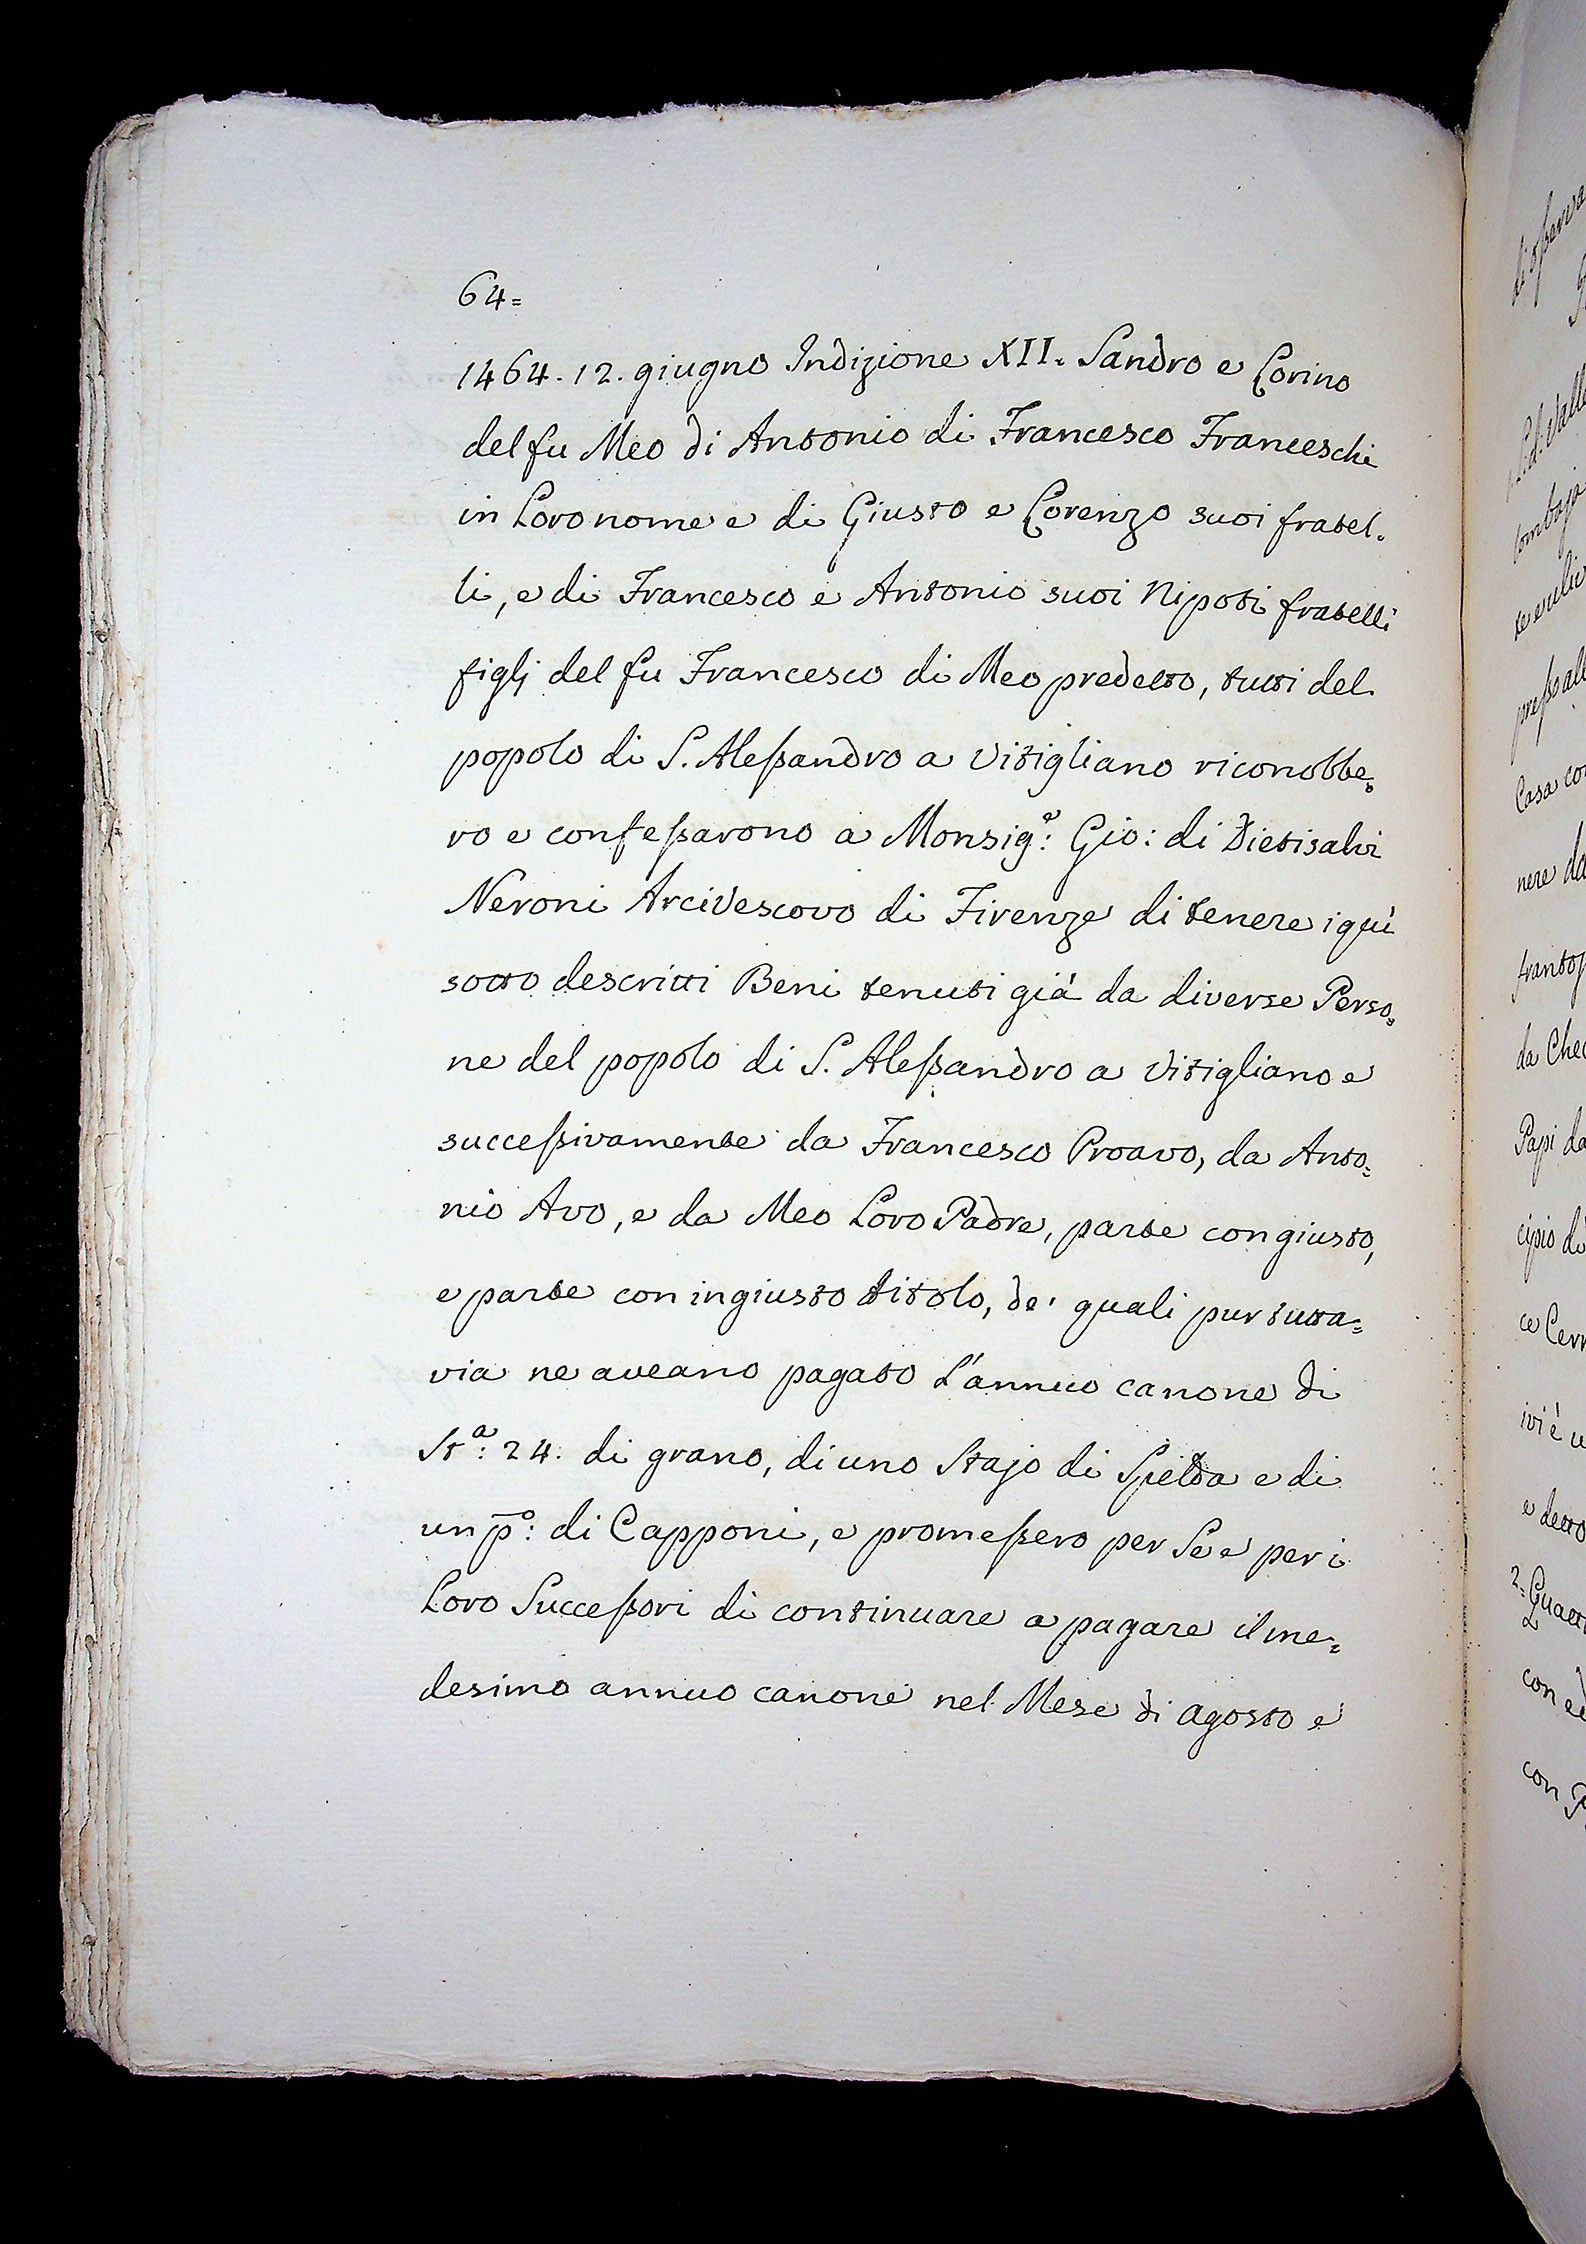 64=
1464. 12. giugno Indizione XII. Sandro e Lorino
del fu Meo di Antonio di Francesco Franceschi
in Loro nome e di Giusto e Lorenzo suoi fratel=
li, e di Francesco e Antonio suoi Nipoti fratelli
figlj del fu Francesco di Meo predetto, tutti del
popolo di S. Alessandro a Vitigliano riconobbe=
ro e confessarono a Monsig.e: Gio: di Dietisalvi
Neroni Arcivescovo di Firenze di tenere i quì
sotto descritti Beni tenuti già da diverse Perso=
ne del popolo di S. Alessandro a Vitigliano e
successivamente da Francesco Proavo, da Anto=
nio Avo, e da Meo Loro Padre, parte con giusto,
e parte con ingiusto titolo, de' quali pur tutta=
via ne aveano pagato L'annuo canone di
St.a: 24. di grano, di uno Stajo di Spelda e di
un p.o: di Capponi, e promessero per Se e per i
Loro Successori di continuare a pagare il me=
desimo annuo canone nel Mese di Agosto e
Casa
nere da
da
Papi da
cipio di
ivi è
e detto
con
con